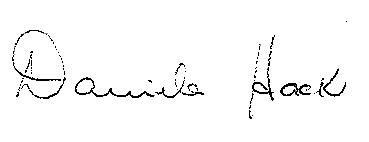 Daniela Hack